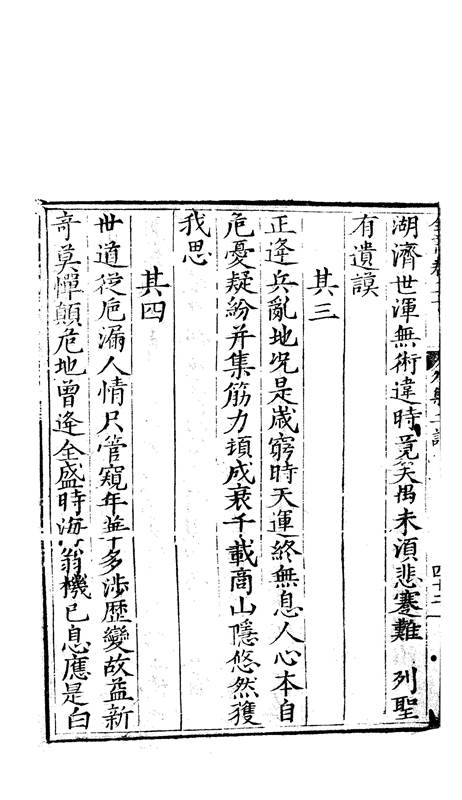 湖濟世渾無術違時竟笑愚未須悲蹇難 列聖
有遺謨
其三
正逢兵亂地况是歲窮時天運終無息人心本自
危憂疑紛并集筋力頓成衰千載商山隱悠然獲
我思
其四
世道從巵漏人情只管窺年華多涉歷變故益新
奇莫憚顛危地曾逢全盛時海翁機已息應是白